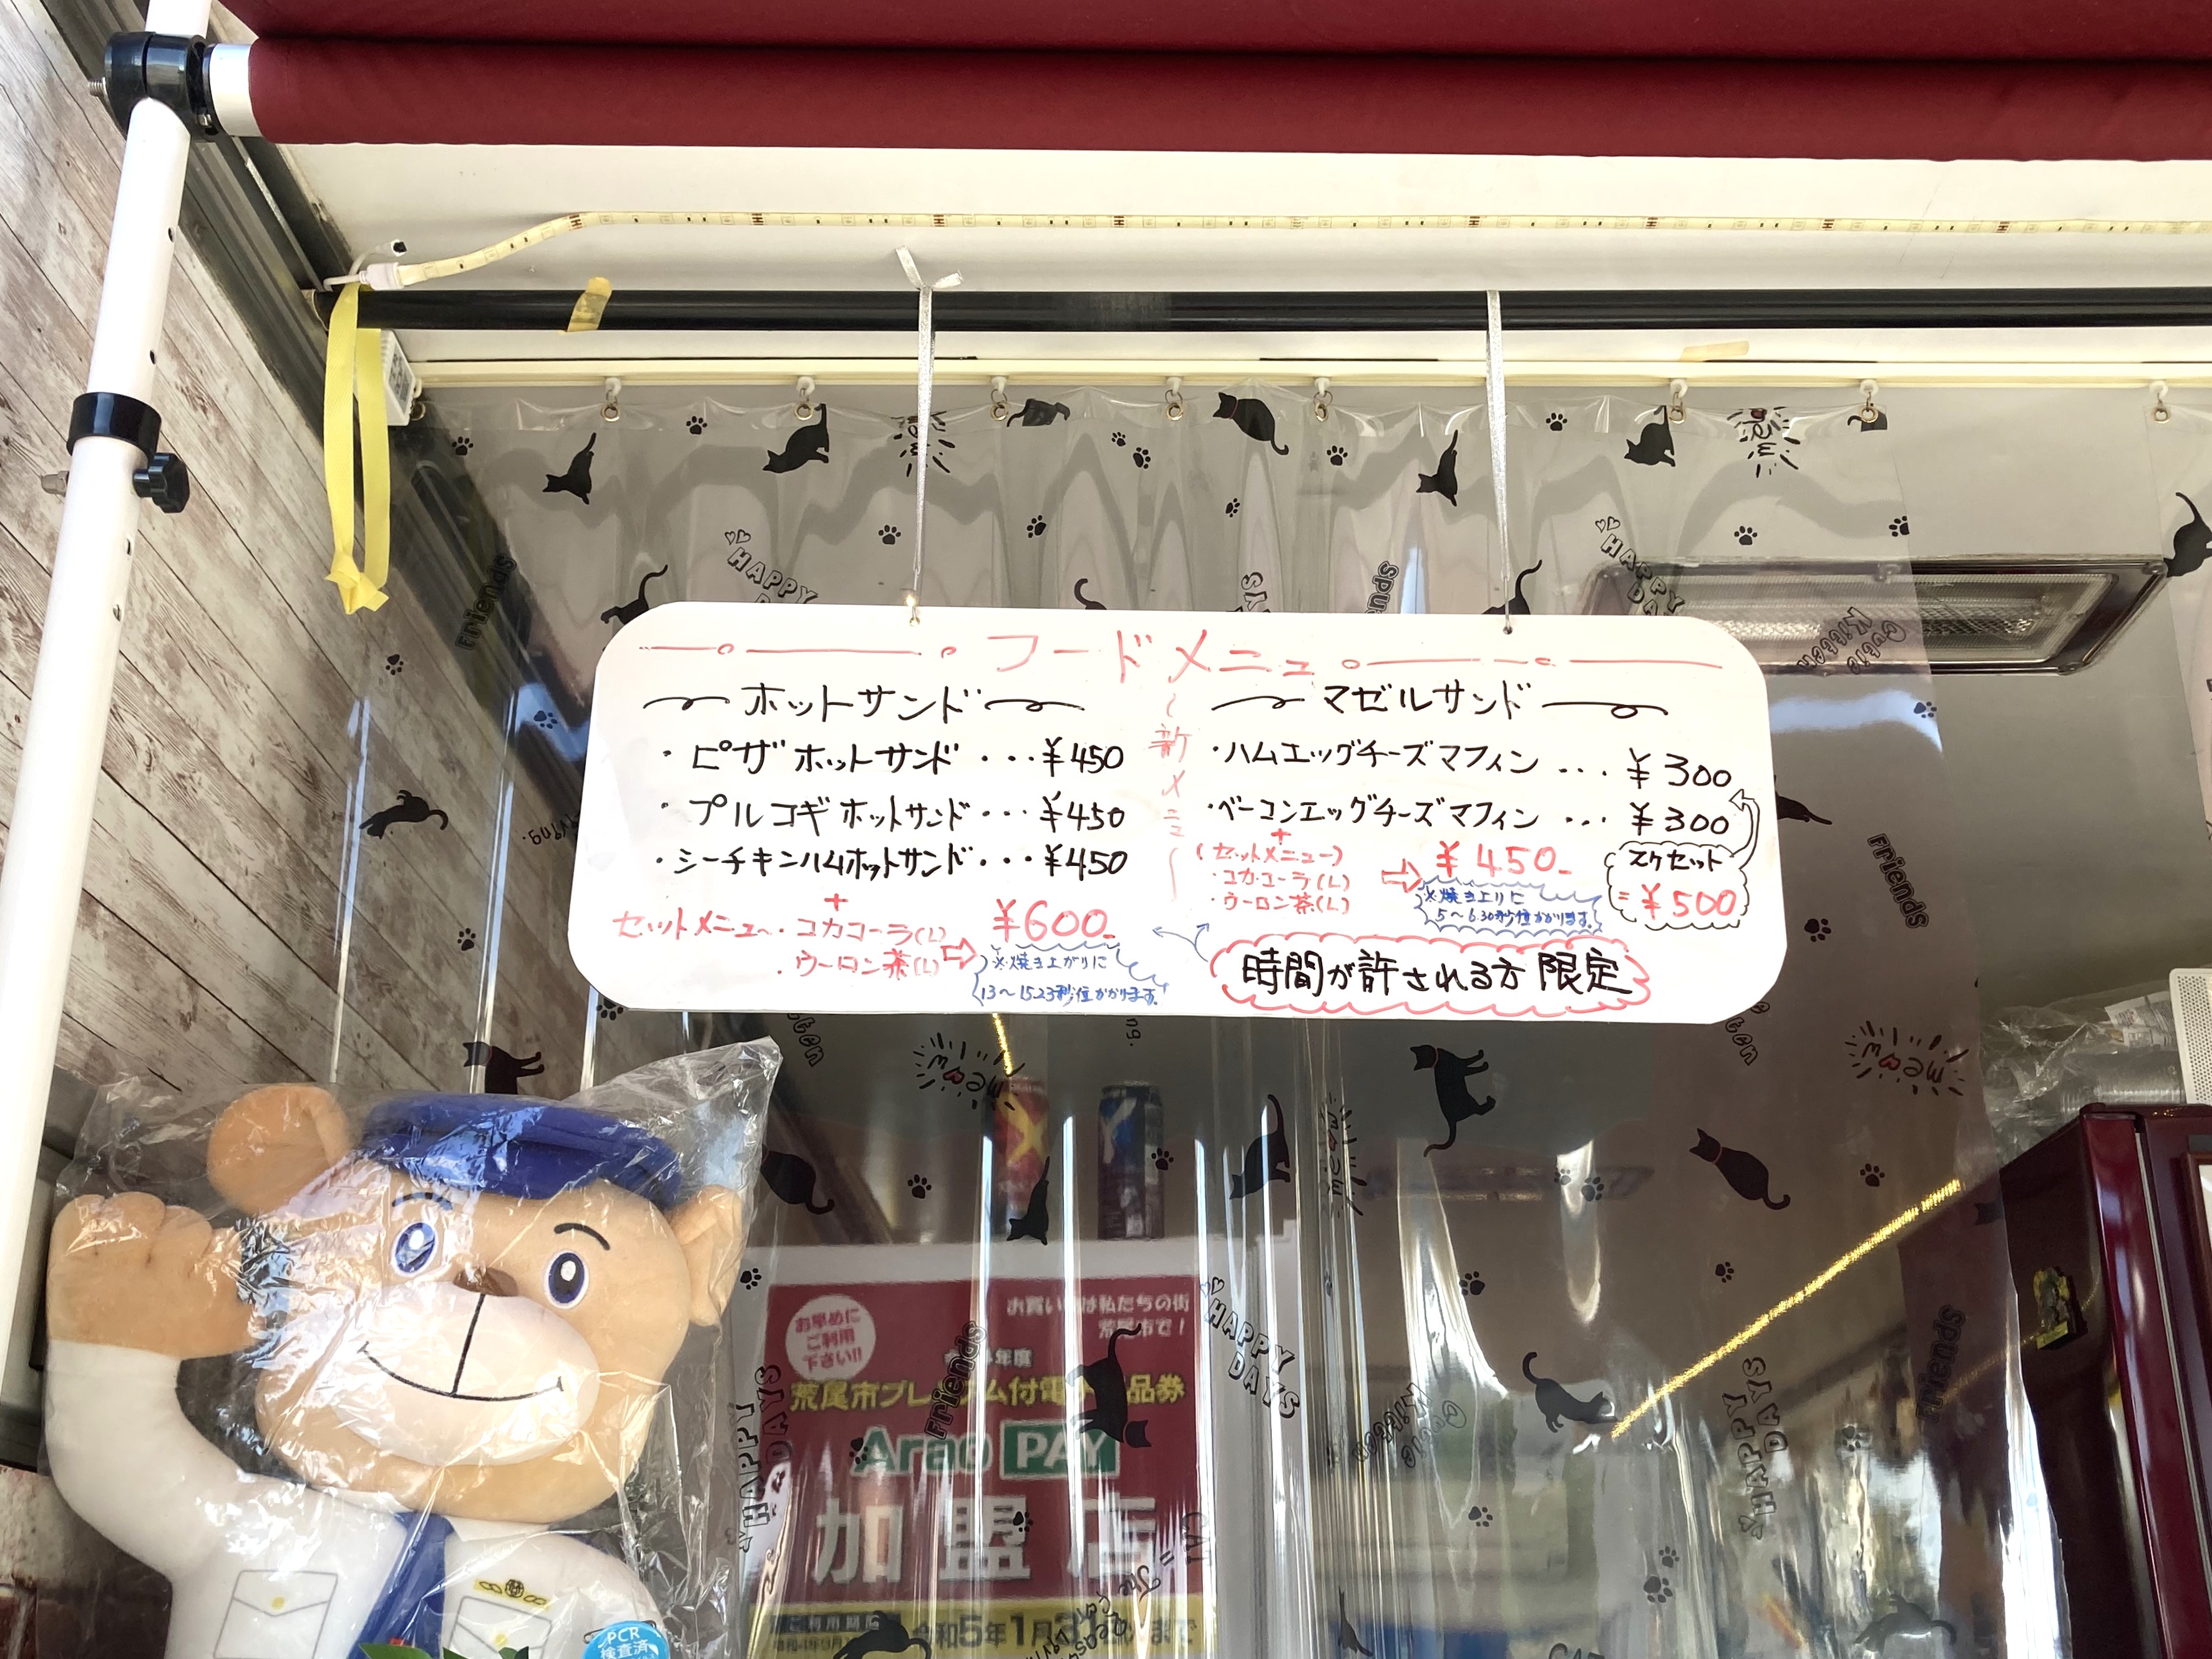 フードメニュー
ホットサンド
・ピザホットサンド・・・¥450
・プルコギホットサンド・・・¥450
・シーチキンハムホットサンド・・・¥450
+
セットメニュー・コカコーラ(L)
・ウーロン茶(L)
⇨ ¥600-
※焼き上がりに
13〜15.23秒位かかります。
〜新メニュー〜
マゼルサンド
・ハムエッグチーズマフィン ・・・ ¥300
・ベーコンエッグチーズマフィン ・・・ ¥300
+
(セットメニュー)
・コカコーラ(L)
・ウーロン茶(L)
⇨ ¥450-
※焼き上りに
5〜6.30秒位かかります。
2ケセット
=¥500
時間が許される方限定
HAPPY DAYS
Friends
Cutie Kitten
meow
お早めに
ご利用
下さい!!
は私たちの街
荒尾市で!
年度
荒尾市プレ ム付電 品券
Arao PAY
加盟店
令和5年1月 まで
PCR
検査済